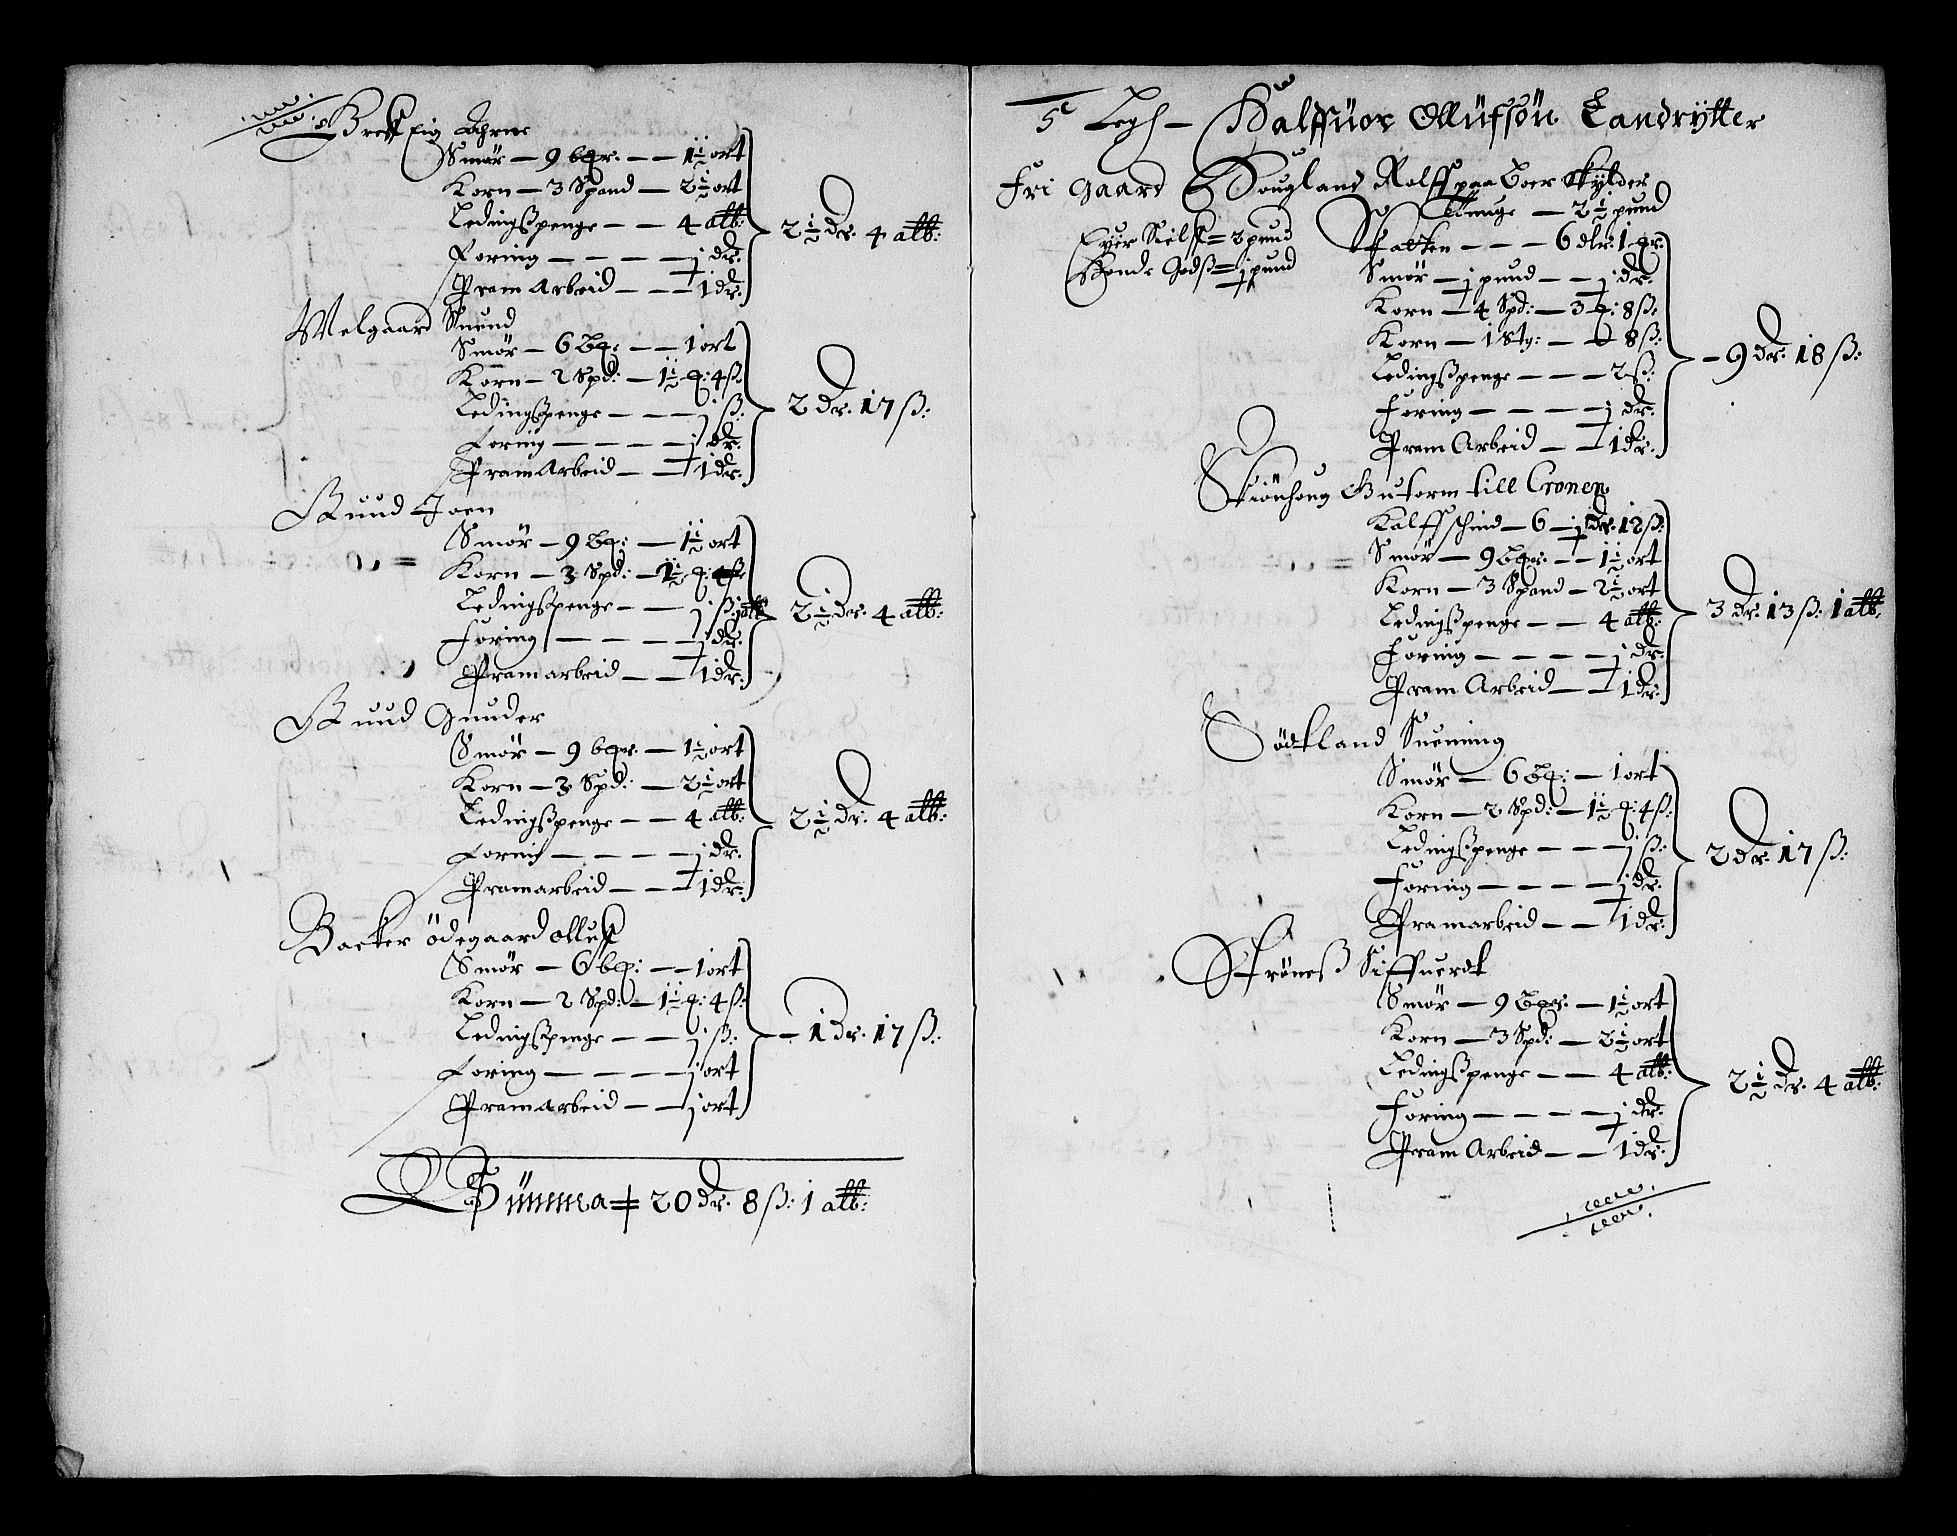 Brech Eig Ahrne
Smør — 9 bpr: — — 1½ ort
Korn — 3 Spand — 2½ ort
Ledingspenge — — 4 alb:
Foring — — — — j dr:
Pram Arbeid — — — 1 dr:
2½ dr. 4 alb:
Welgaard Suend
Smør — 6 Bp: — — 1 ort
Korn — 2 Spd: — 1½ q: 4 ß
Ledingspenge — — — j ß:
Foring — — — — j dr:
Pram Arbeid — — 1 dr:
2 dr. 17 ß:
Ruud Joen
Smør — 9 Bp: — 1½ ort
Korn — 3 Spd: — 1½ q:
Ledingspenge — — j ß: 1 alb
Foring — — — — j dr:
Pramarbeid — — 1 dr:
2½ dr. 4 alb:
Ruud Gunder
Smør — 9 bpr — 1½ ort
Korn — 3 Spd: — 2½ ort
Ledingspenge — — 4 alb:
Foring — — — — j dr:
Pramarbeid — — 1 dr:
2½ dr. 4 alb:
Backer ödegaard olluff
Smør — 6 bp: — — 1 ort
Korn — 2 Spd: — 1½ q: 4 ß
Ledingspenge — — j ß:
Foring — — — — j ort
Pramarbeid — — j ort
— 1 dr. 17 ß:
Summa 20 dr. 8 ß: 1 alb:
5 Legh — Halffuor Ollufsøn Landrytter
Fri gaard Hougland Rolff paaboer Skylder
Tunge — 2½ pund
Eyer Sielff = 2 pund
Bonde Godß = j pund
Skatten — — — 6 dlr: 1 q:
Smør — j pund — — j dr:
Korn — 4 Spd: — 3 q: 8 ß
Korn — 1 Stg: — 8 ß:
Ledingspenge — — — 2 ß:
Foring — — — — j dr:
Pram Arbeid — — 1 dr:
— 9 dr. 18 ß:
Skönhoug Gutorm till Cronen
Kalffschind — 6 — j dr: 12 ß:
Smør — 9 bpr — — 1½ ort
Korn — 3 Spand — 2½ ort
Ledingspenge — — 4 alb:
Foring — — — — j dr:
Pram Arbeid — — 1 dr:
3 dr. 13 ß: 1 alb:
Södtland Suening
Smør — 6 Bp: — 1 ort
Korn — 2 Spd: — 1½ q: 4 ß:
Ledingspenge — — — j ß:
Foring — — — — j dr:
Pramarbeid — — 1 dr:
2 dr. 17 ß:
Ströneß Siffuerdt
Smør — 9 Bpr — 1½ ort
Korn — 3 Spd: — 2½ ort
Ledingspenge — — 4 alb:
Foring — — — — j dr:
Pram Arbeid — — 1 dr:
2½ dr. 4 alb: